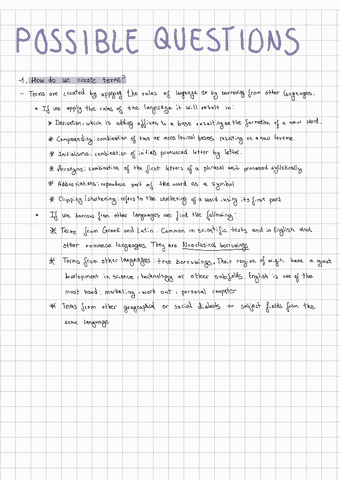 POSSIBLE QUESTIONS
-1. How do we create terms?
- Terms are created by applying the rules of language or by borrowing from other languages.
• If we apply the rules of the language it will result in:
* Derivation: which is adding affixes to a base resulting on the formation of a new word.
* Compounding: combination of two or more lexical bases resulting on a new lexeme.
* Initialisms: combination of initials pronounced letter by letter.
* Acronyms: combination of the first letters of a phrasal unit pronounced syllabically
* Abbreviations: reproduce part of the word as a symbol
* Clipping/shortening: refers to the shortening of a word using its first part
• If we borrow from other languages we find the following:
* Terms from Greek and Latin. Common in scientific texts and in English and
other romance languages. They are Neoclassical borrowings
* Terms from other languages: true borrowings. Their region of origin have a great
development in science, technology or other subfields. English is one of the
most used: marketing, work out, personal computer
* Terms from other geographical or social dialects or subject fields from the
same language